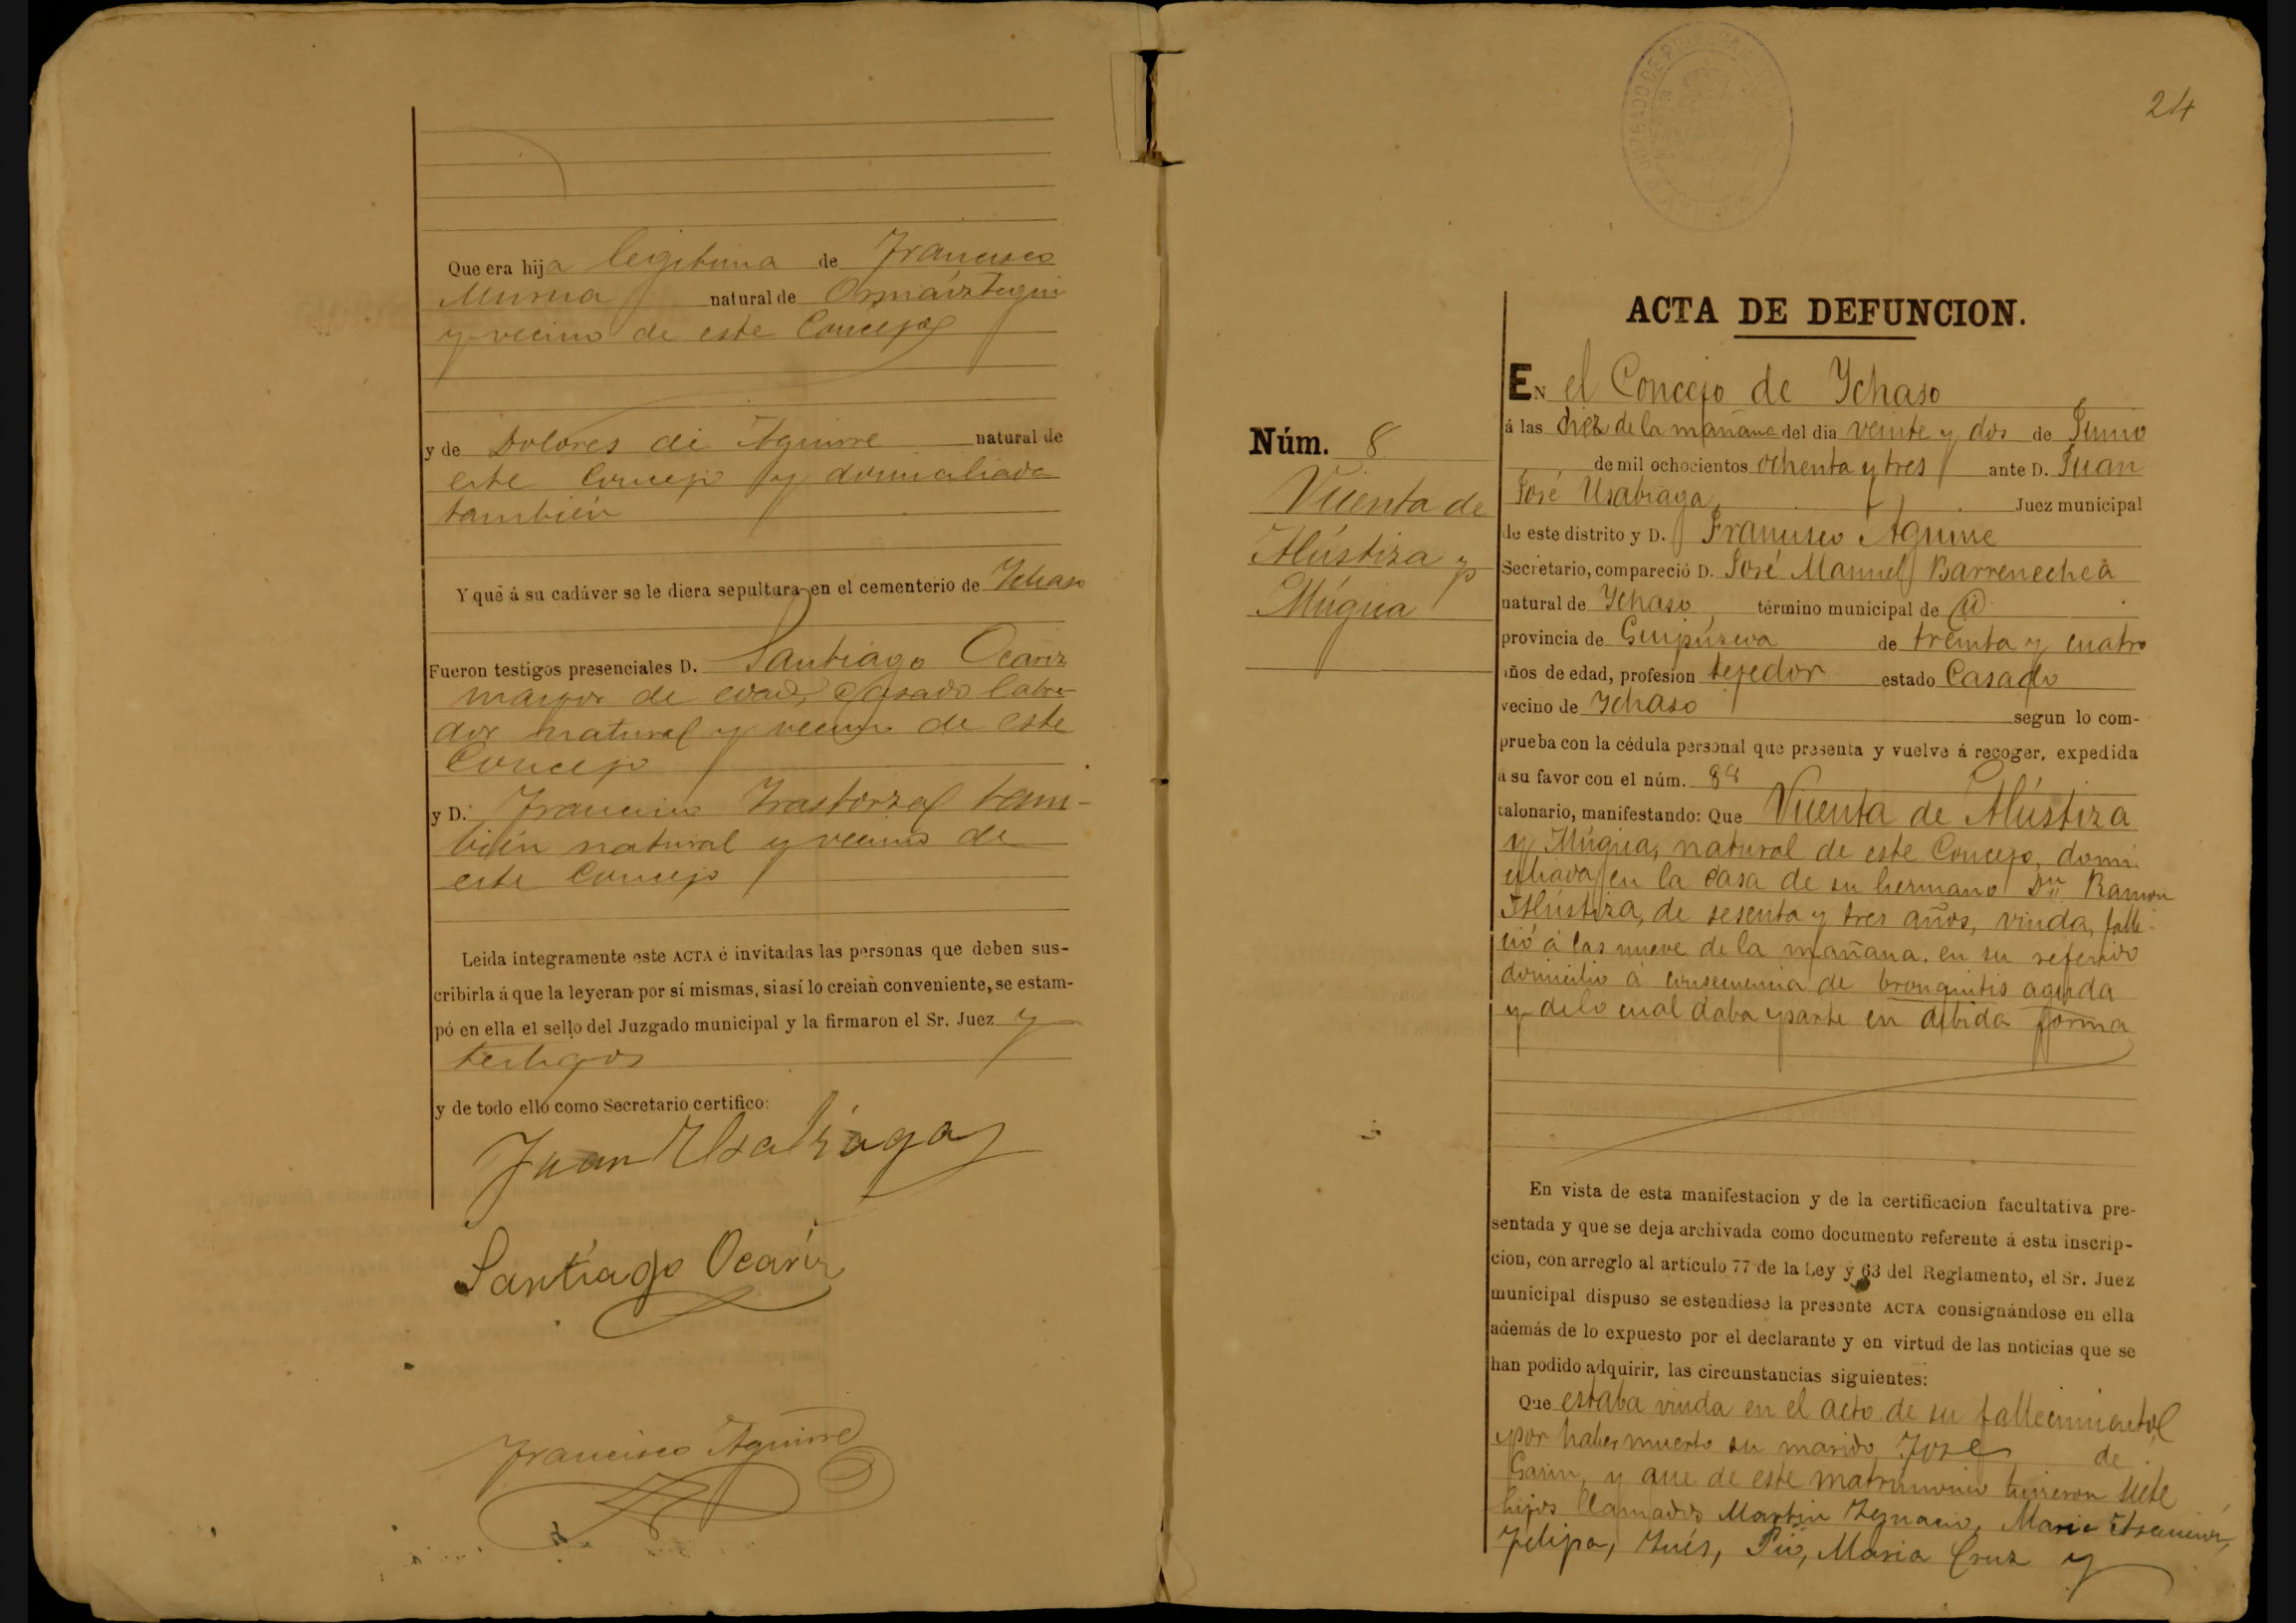 Que era hija legitima de Francisco
Murua natural de Ormáiztegui
y vecino de este Concejo
y de Dolores de Aguirre natural de
este Concejo y domiciliada
también
Y que á su cadáver se le diera sepultura en el cementerio de Ychaso
Fueron testigos presenciales D. Santiago Ocariz
mayor de edad, casado labra-
dor natural y vecino de este
Concejo
y D. Francisco Yrastorza tam-
bién natural y vecino de
este Concejo
Leida íntegramente este ACTA é invitadas las personas que deben sus-
cribirla á que la leyeran por sí mismas, si así lo creian conveniente, se estam-
pó en ella el sello del Juzgado municipal y la firmaron el Sr. Juez y
testigos
y de todo ello como Secretario certifico:
Juan Usabiaga
Santiago Ocariz
Francisco Aguirre
24
Núm. 8
Vicenta de
Alústiza y
Múgica
ACTA DE DEFUNCION.
EN el Concejo de Ychaso
á las diez de la mañana del dia veinte y dos de Junio
de mil ochocientos ochenta y tres ante D. Juan
José Usabiaga, Juez municipal
de este distrito y D. Francisco Aguirre
Secretario, compareció D. José Manuel Barrenechea
natural de Ychaso, término municipal de id
provincia de Guipúzcoa de treinta y cuatro
años de edad, profesion tejedor estado Casado
vecino de Ychaso segun lo com-
prueba con la cédula personal que presenta y vuelve á recoger, expedida
á su favor con el núm. 88
talonario, manifestando: Que Vicenta de Alústiza
y Múgica, natural de este Concejo, domi
ciliada en la casa de su hermano Dn Ramon
Alústiza, de sesenta y tres años, viuda, falle-
ció á las nueve de la mañana, en su referido
domicilio á consecuencia de bronquitis aguda
y de lo cual daba parte en debida forma
En vista de esta manifestacion y de la certificacion facultativa pre-
sentada y que se deja archivada como documento referente á esta inscrip-
cion, con arreglo al artículo 77 de la Ley y 63 del Reglamento, el Sr. Juez
municipal dispuso se estendiese la presente ACTA consignándose en ella
además de lo expuesto por el declarante y en virtud de las noticias que se
han podido adquirir, las circunstancias siguientes:
Que estaba viuda en el acto de su fallecimiento
por haber muerto su marido José de
Garin, y que de este matrimonio tuvieron siete
hijos llamados Martin Ygnacio, Maria Asencion,
Felipa, Ynés, Pio, Maria Cruz y